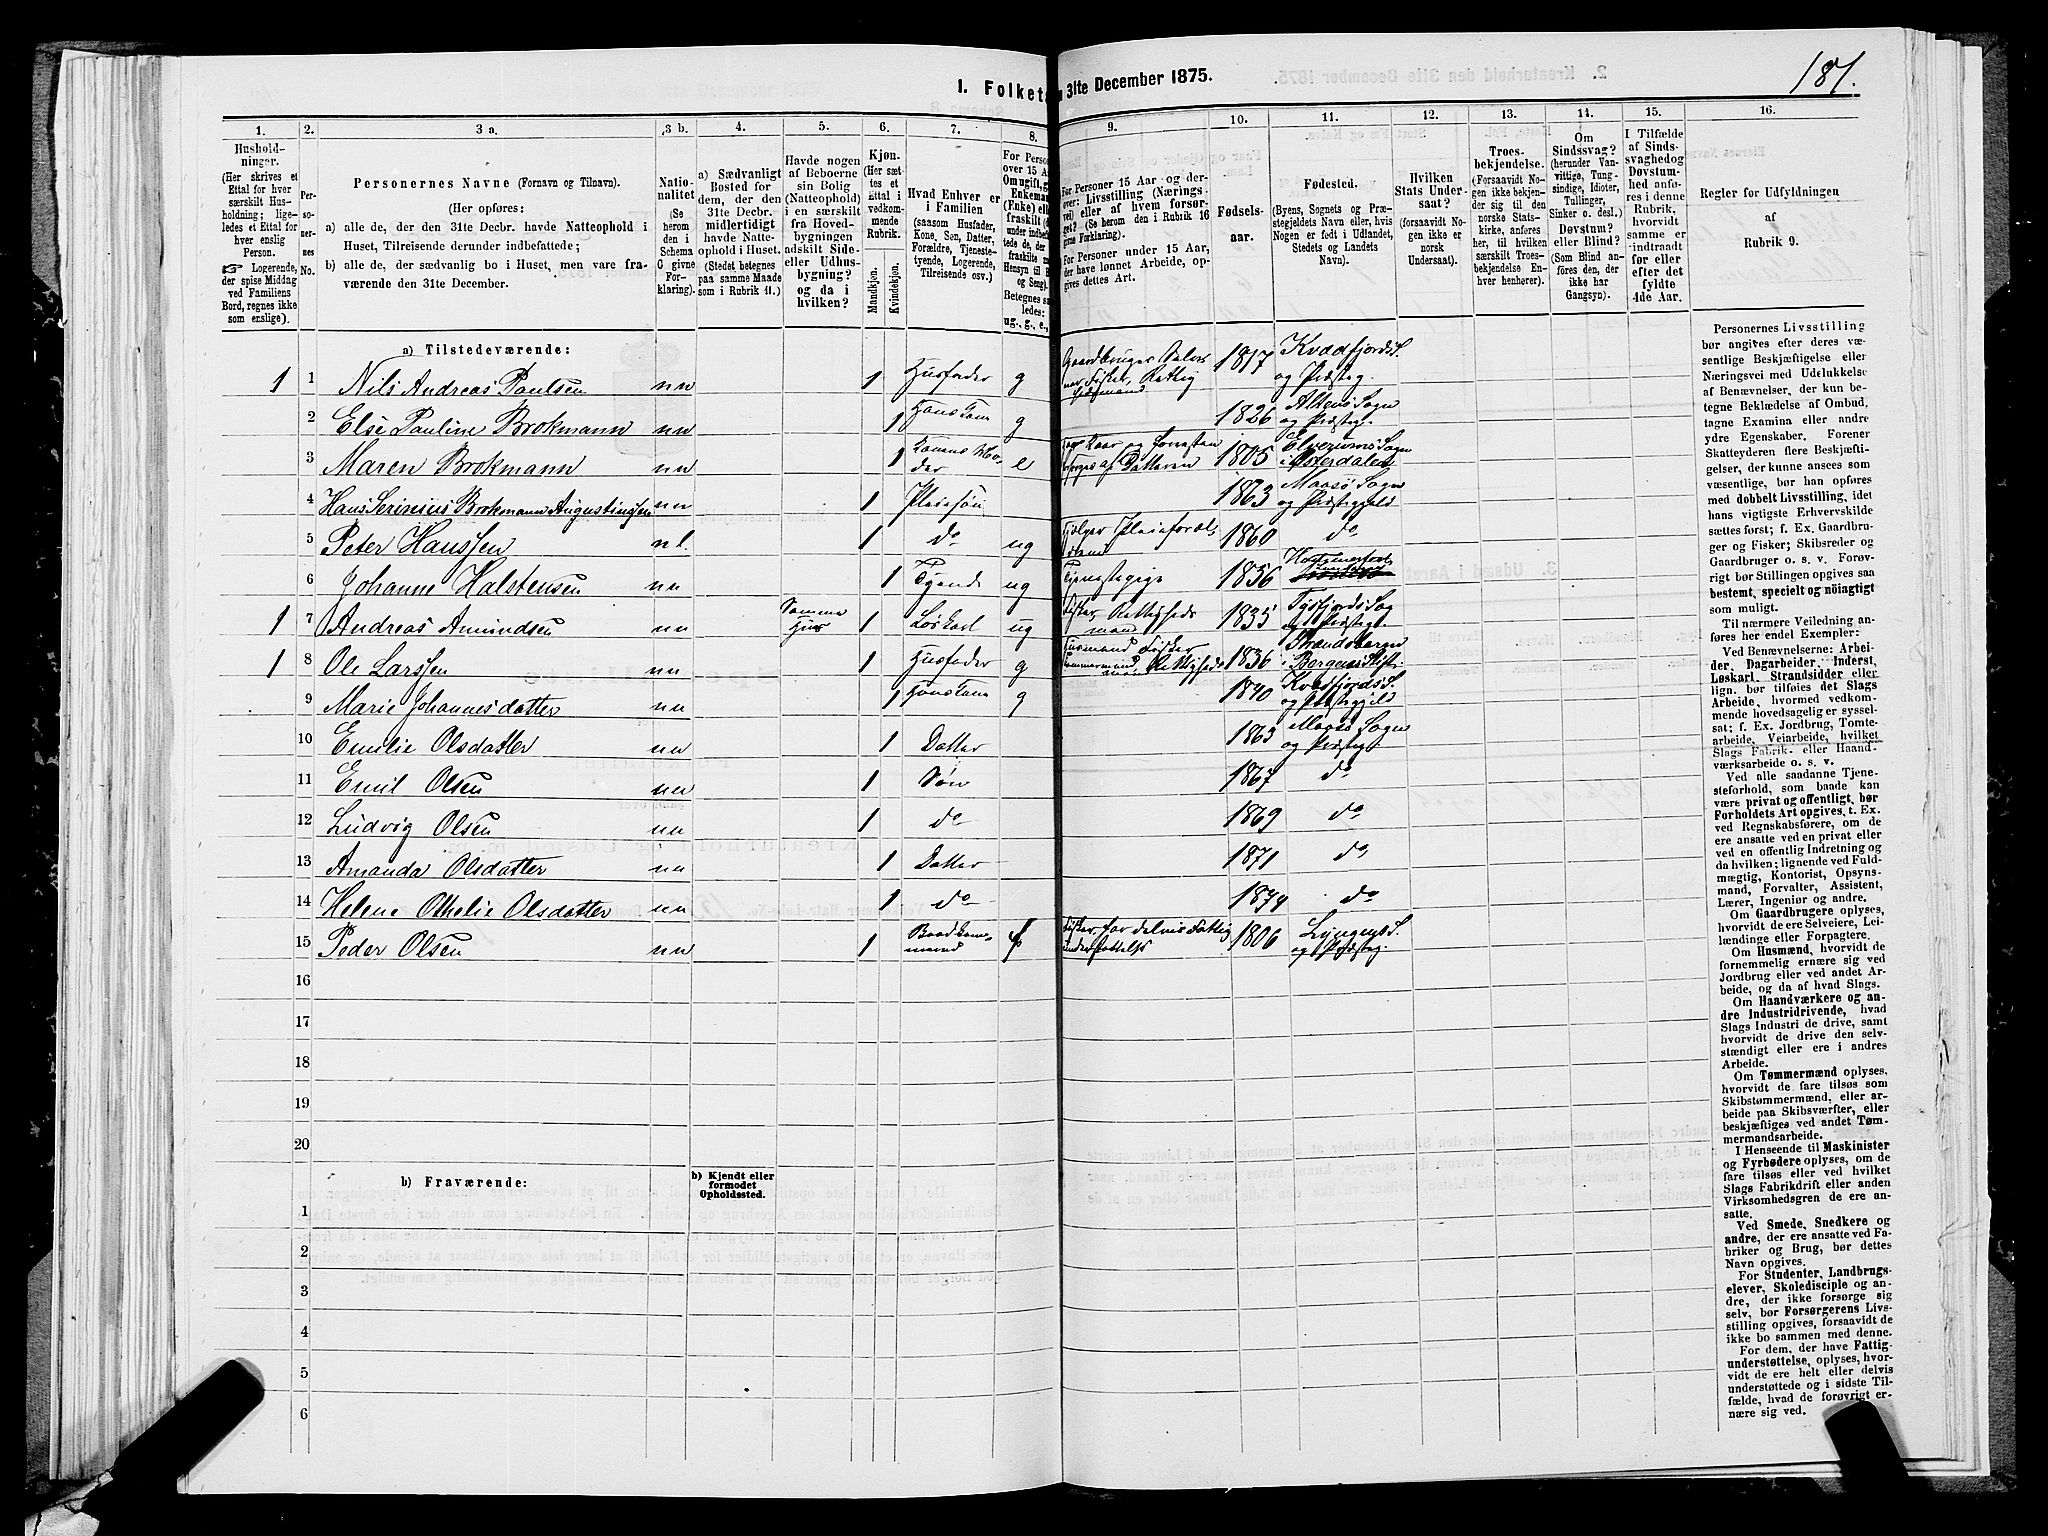 181.
1. Folketa
31te December 1875.
1.
2.
3 a.
3 b.
4.
5.
6.
7.
8.
9.
10.
11.
12.
13.
14.
15.
16.
Hushold-
ninger.
(Her skrives et
Ettal for hver
særskilt Hus-
holdning; lige-
ledes et Ettal for
hver enslig
Person.
☞ Logerende,
der spise Middag
ved Familiens
Bord, regnes ikke
som enslige).
Per-
so-
ner-
nes
No.
Personernes Navne (Fornavn og Tilnavn).
(Her opføres:
a) alle de, der den 31te Decbr. havde Natteophold i
Huset, Tilreisende derunder indbefattede;
b) alle de, der sædvanlig bo i Huset, men vare fra-
værende den 31te December.
Natio-
nalitet
(Se
herom
den i
Schema
C givne
For-
klaring).
a) Sædvanligt
Bosted for
dem, der den
31te Decbr.
midlertidigt
havde Natte-
ophold i Huset.
(Stedet betegnes
paa samme Maade
som i Rubrik 11.)
Havde nogen
af Beboerne
sin Bolig
(Natteophold)
i en særskilt
fra Hoved-
bygningen
adskilt Side-
eller Udhus-
bygning?
og da i
hvilken?
Kjøn.
(Her sæt-
tes et
Ettal i
vedkom-
mende
Rubrik.
Mandkjøn.
Kvindekjøn.
Hvad Enhver er
i Familien
(saasom Husfader,
Kone, Søn, Datter,
Forældre, Tjeneste-
tyende, Logerende,
Tilreisende osv.)
For Person
over 15 Aar
Om ugift, g
Enkema
(Enke) elle
fraskilt
Betegnes sa
ledes:
ug., g., e.,
For Personer 15 Aar og der-
over: Livsstilling (Nærings-
vei) eller af hvem forsør-
get? (Se herom den i Rubrik 16
givne Forklaring).
For Personer under 15 Aar,
der have lønnet Arbeide, op-
gives dettes Art.
Fødsels-
aar.
Fødested.
(Byens, Sognets og Præ-
stegjeldets Navn eller, hvis
Nogen er født i Udlandet,
Stedets og Landets
Navn).
Hvilken
Stats Under-
saat?
(forsaavidt No-
gen ikke er
norsk
Undersaat).
Troes-
bekjendelse.
(Forsaavidt No-
gen ikke bekjen-
der sig til den
norske Stats-
kirke, anføres
her, til hvilken
særskilt Troes-
bekjendelse En-
hver henhører).
Om
Sindssvag?
(herunder Van-
vittige, Tung-
sindige, Idioter,
Tullinger,
Sinker o. desl.)
Døvstum?
eller Blind?
(Som Blind an-
føres den, der
ikke har
Gangsyn).
I Tilfælde
af Sinds-
svaghed og
Døvstum-
hed anfø-
res i denne
Rubrik,
hvorvidt
samme er
indtraadt
før eller ef-
ter det
fyldte
4de Aar.
Regler for Udfyldningen
af
Rubrik 9.
a) Tilstedeværende:
1 1 Nils Andreas Paulsen nn 1 Husfader g Gaardbruger Selvei-
er Fisker, Rettig 1817 Kvædfjords S.
og Præsteg.
2 Else Pauline Brokmann nn 1 Hans Kone g 1826 Altens Sogn
og Præsteg.
3 Maren Brokmann nn 1 Konens Mo-
der e af Datteren 1805 Elverums Sogn
i Østerdalen
4 Hans Serinius Brokmann Augustinssen nn 1 Pleiesøn 1863 Maasø Sogn
og Præstegjeld
5 Peter Hanssen nl. 1 do ug Hjelper Pleieforæl- 1860 do
6 Johanne Halstensen nn 1 Tyende ug Tjenestepige 1856 Hammerfest
1 7 Andreas Amundsen nn Samme
Hus 1 Løskarl ug Fisker, Rettigheds
mand 1835 Tysfjords Sog
og Præstegj.
1 8 Ole Larssen nn 1 Husfader g Husmand Fisker
Tømmermand Rettigheds
mand 1836 Strandebarm
i Bergens Stift.
9 Marie Johannesdatter nn 1 Hans Kone g 1840 Kvæfjords S.
og Præstegjeld
10 Emilie Olsdatter nn 1 Datter 1863 Maasø Sogn
og Præstegj.
11 Emil Olsen nn 1 Søn 1867 do
12 Ludvig Olsen nn 1 do 1869 do
13 Amanda Olsdatter nn 1 Datter 1871 do
14 Helene Othelie Olsdatter nn 1 do 1874 do
15 Peder Olsen nn 1 mand Fisker, for delvis Fattig
understøttelse 1806 Lyngens S.
og Præsteg.
16
17
18
19
20
b) Fraværende:
b) Kjendt eller
formodet
Opholdssted.
1
2
3
4
5
6
Personernes Livsstilling
bør angives efter deres væ-
sentlige Beskjæftigelse eller
Næringsvei med Udelukkelse
af Benævnelser, der kun be-
tegne Beklædelse af Ombud,
tagne Examina eller andre
ydre Egenskaber. Forener
Skatteyderen flere Beskjæfti-
gelser, der kunne ansees som
væsentlige, bør han opføres
med dobbelt Livsstilling, idet
hans vigtigste Erhvervskilde
sættes først; f. Ex. Gaardbru-
ger og Fisker; Skibsreder og
Gaardbruger o. s. v. Forøv-
rigt bør Stillingen opgives saa
bestemt, specielt og nöiagtigt
som muligt.
Til nærmere Veiledning an-
føres her endel Exempler:
Ved Benævnelserne: Arbei-
der, Dagarbeider, Inderst,
Løskarl, Strandsidder eller
lign. bør tilføies det Slags
Arbeide, hvormed vedkom-
mende hovedsagelig er syssel-
sat; f. Ex. Jordbrug, Tomte-
arbeide, Veiarbeide, hvilket
Slags Fabrik- eller Haand-
værksarbeide o. s. v.
Ved alle saadanne Tjene-
steforhold, som baade kan
være privat og offentligt, bør
Forholdets Art opgives, t. Ex.
ved Regnskabsførere, om de
ere ansatte ved en privat eller
ved en offentlig Indretning og
da hvilken; lignende ved Fuld-
mægtig, Kontorist, Opsyns-
mand, Forvalter, Assistent,
Lærer, Ingeniør og andre.
Om Gaardbrugere oplyses,
hvorvidt de ere Selveiere, Lei-
lændinge eller Forpagtere.
Om Husmænd, hvorvidt de
fornemmelig ernære sig ved
Jordbrug eller ved andet Ar-
beide, og da af hvad Slags.
Om Haandværkere og an-
dre Industridrivende, hvad
Slags Industri de drive, samt
hvorvidt de drive den selv-
stændigt eller ere i andres
Arbeide.
Om Tømmermænd oplyses,
hvorvidt de fare tilsøs som
Skibstømmermænd, eller ar-
beide paa Skibsværfter, eller
beskjæftiges ved andet Tøm-
mermandsarbeide.
I Henseende til Maskinister
og Fyrbødere oplyses, om de
fare tilsøs eller ved hvilket
Slags Fabrikdrift eller anden
Virksomhedsgren de ere an-
satte.
Ved Smede, Snedkere og
andre, der ere ansatte ved Fa-
briker og Brug, bør dettes
Navn opgives.
For Studenter, Landbrugs-
elever, Skoledisciple og an-
dre, der ikke forsørge sig
selv, bør Forsørgerens Livs-
stilling opgives, forsaavidt de
ikke bo sammen med denne.
For dem, der have Fattig-
understøttelse, oplyses, hvor-
vidt de ere helt eller delvis
understøttede og i sidste Til-
fælde, hvad de forøvrigt er-
nære sig ved.